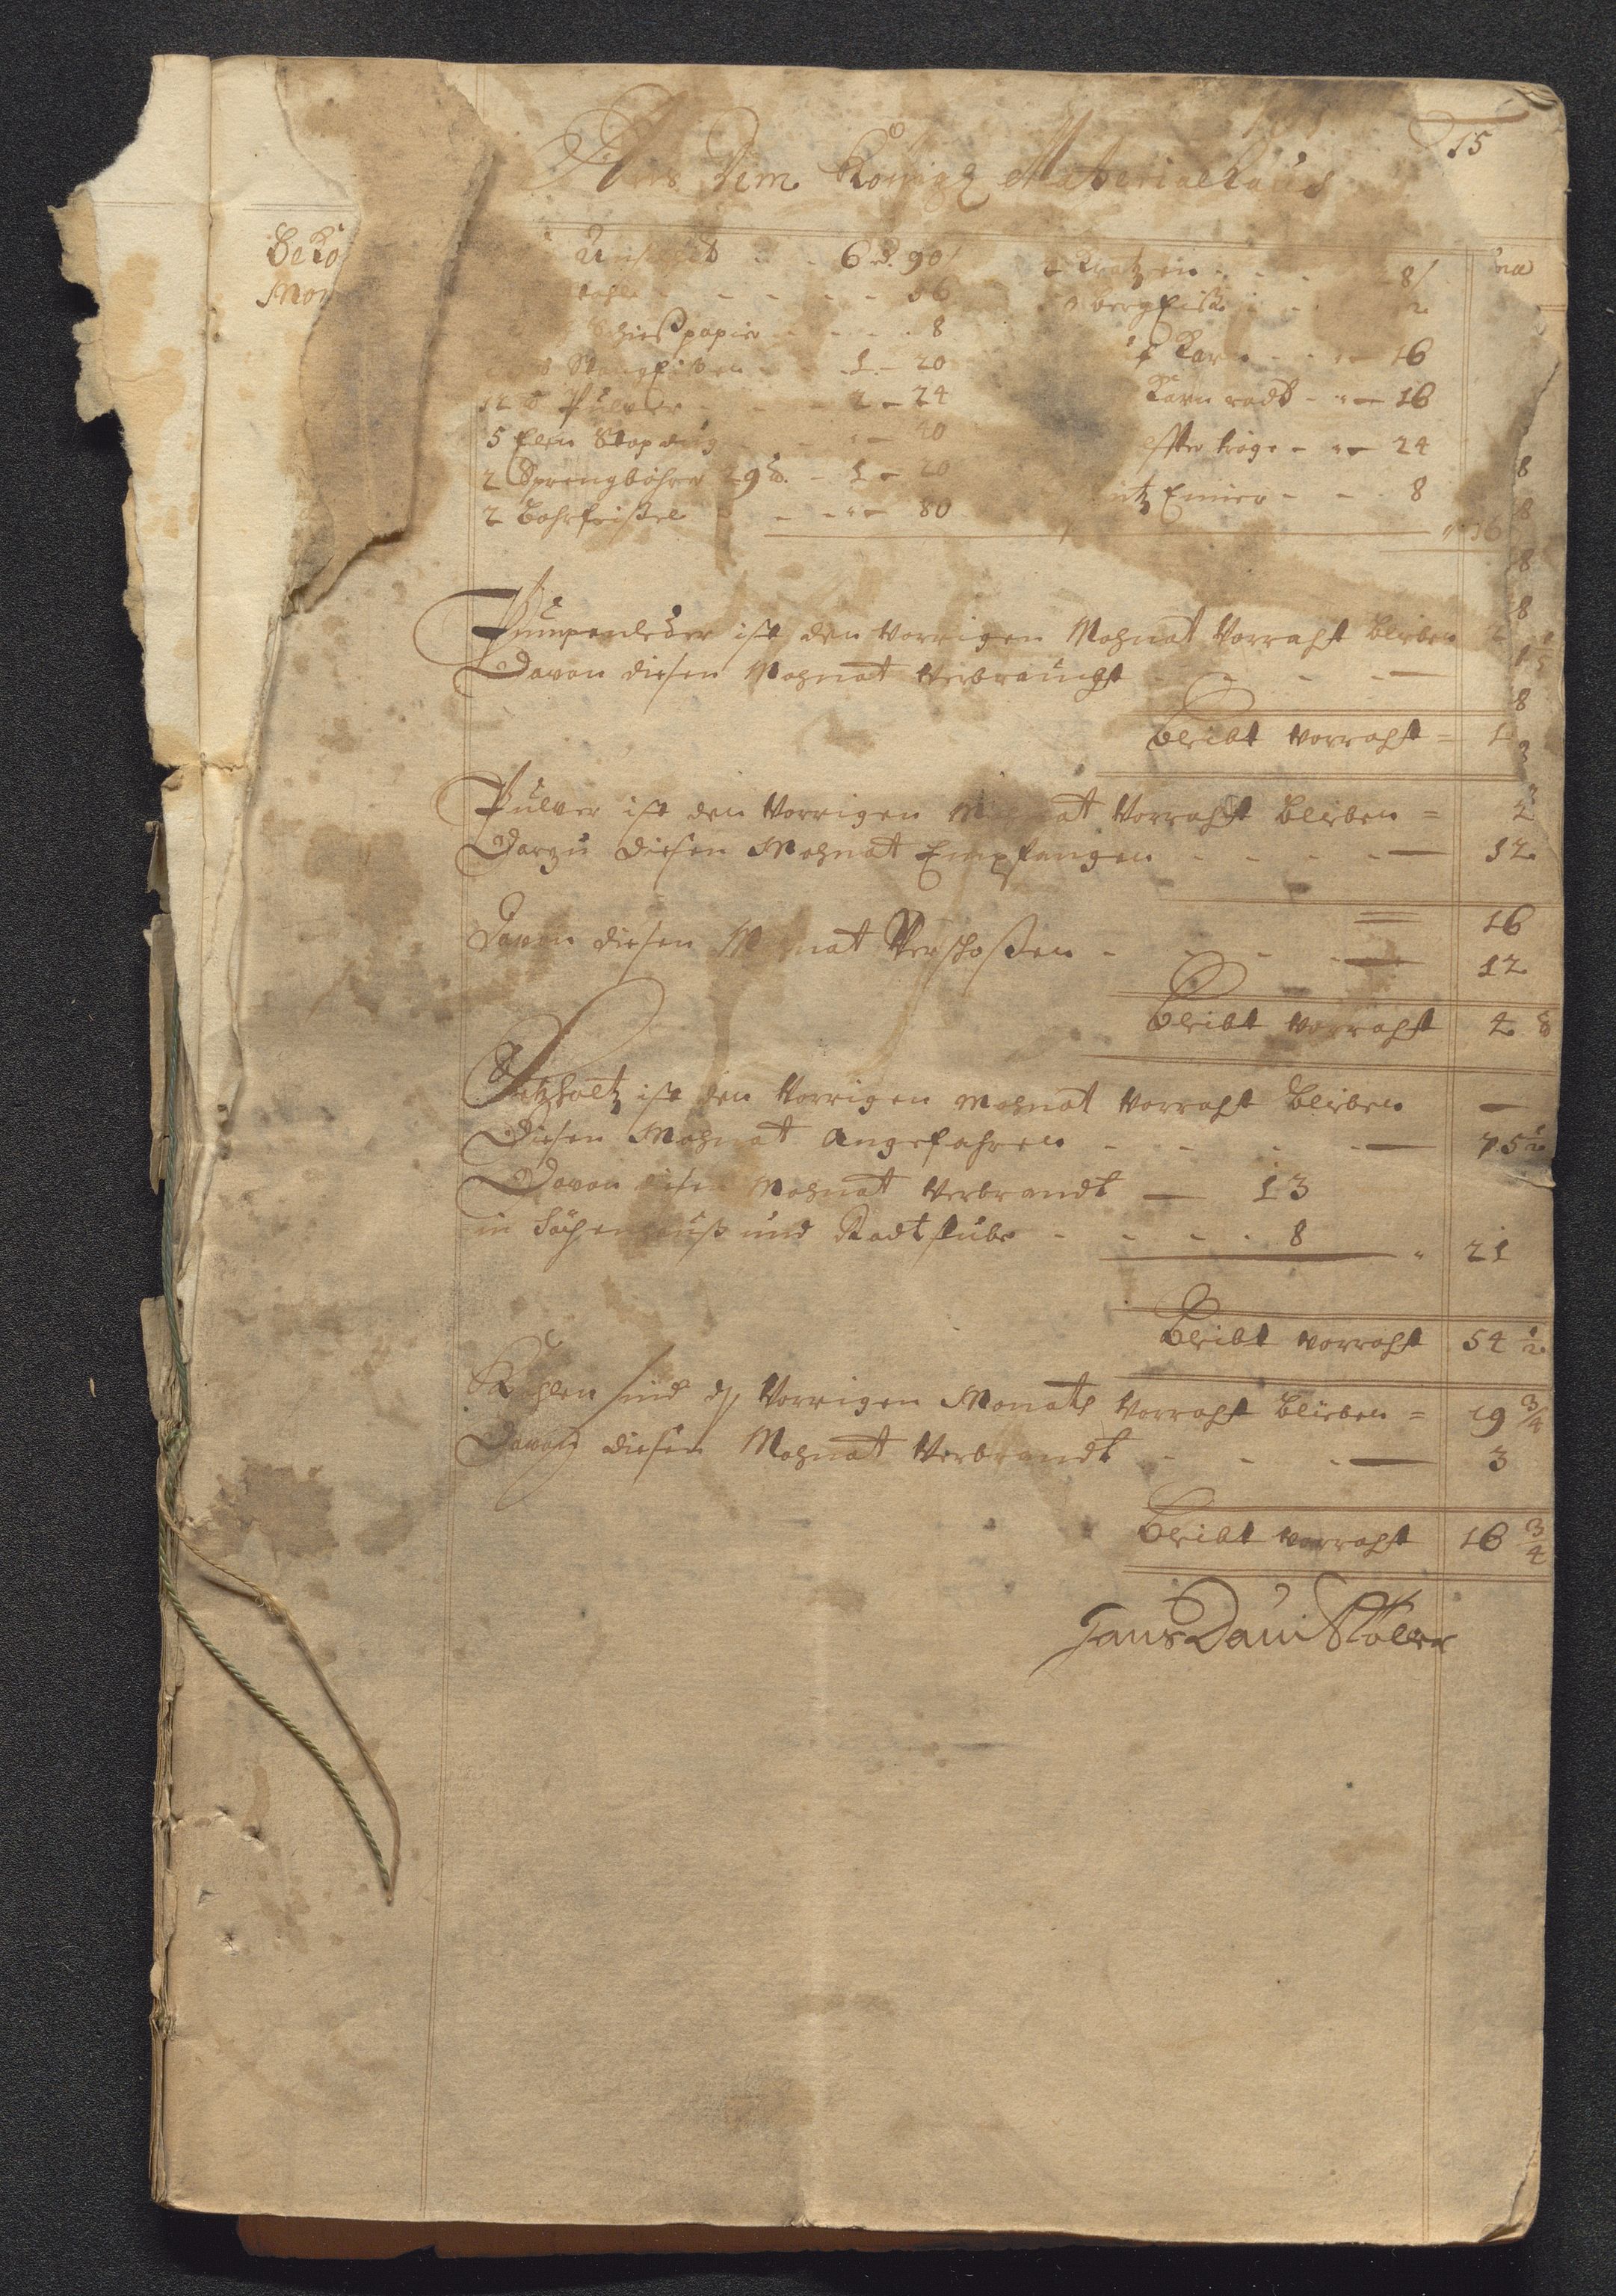 15
Aus Dem Königl Materialhaus
Beko
Mon
Unschlit - - 6 rd. 90/
2 Kratzen - - 8/
- - - - 56
bergEiße - - 2
Schießpapir - - - 8
1 Karn - - " - 16
Stangeißen - - 1 - 20
Karn radt - " - 16
12 lb Pulver - - 2 - 24
5 Elen - - " - 40
tröge - " - 24
2 Sprengbohrer 29 lb. - 1 - 20
Eimer - - 8
2 Bohrfeißel - - " - 80
Pumpenleder ist den Vorrigen Mohnat Vorraht bleiben 2
Davon diesen Mohnat Verbraucht - - - -
bleibt vorraht = 1
Pulver ist den Vorrigen Mohnat Vorraht bleiben = 4
Darzu diesen Mohnat Empfangen - - - - 12
16
Davon diesen Mohnat Verschoßen - - - - 12
bleibt vorraht 4 lb
Setzholtz ist den Vorrigen Mohnat Vorraht bleiben —
Diesen Mohnat Angefahren - - - - 75 1/2
Davon diesen Mohnat Verbrandt — 13
in und Radtstube - - - - 8 " 21
bleibt vorraht 54 1/2
Kohlen sind dß Vorrigen Monats Vorraht bleiben = 19 3/4
Davon diesen Mohnat Verbrandt - - - - 3
bleibt vorraht 16 3/4
Hans Davi